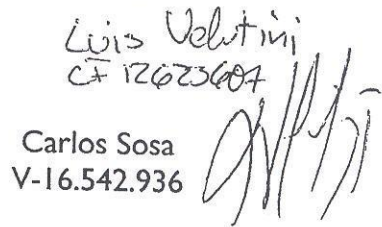 Luis Velutini
CI 12623607
Carlos Sosa
V-16.542.936